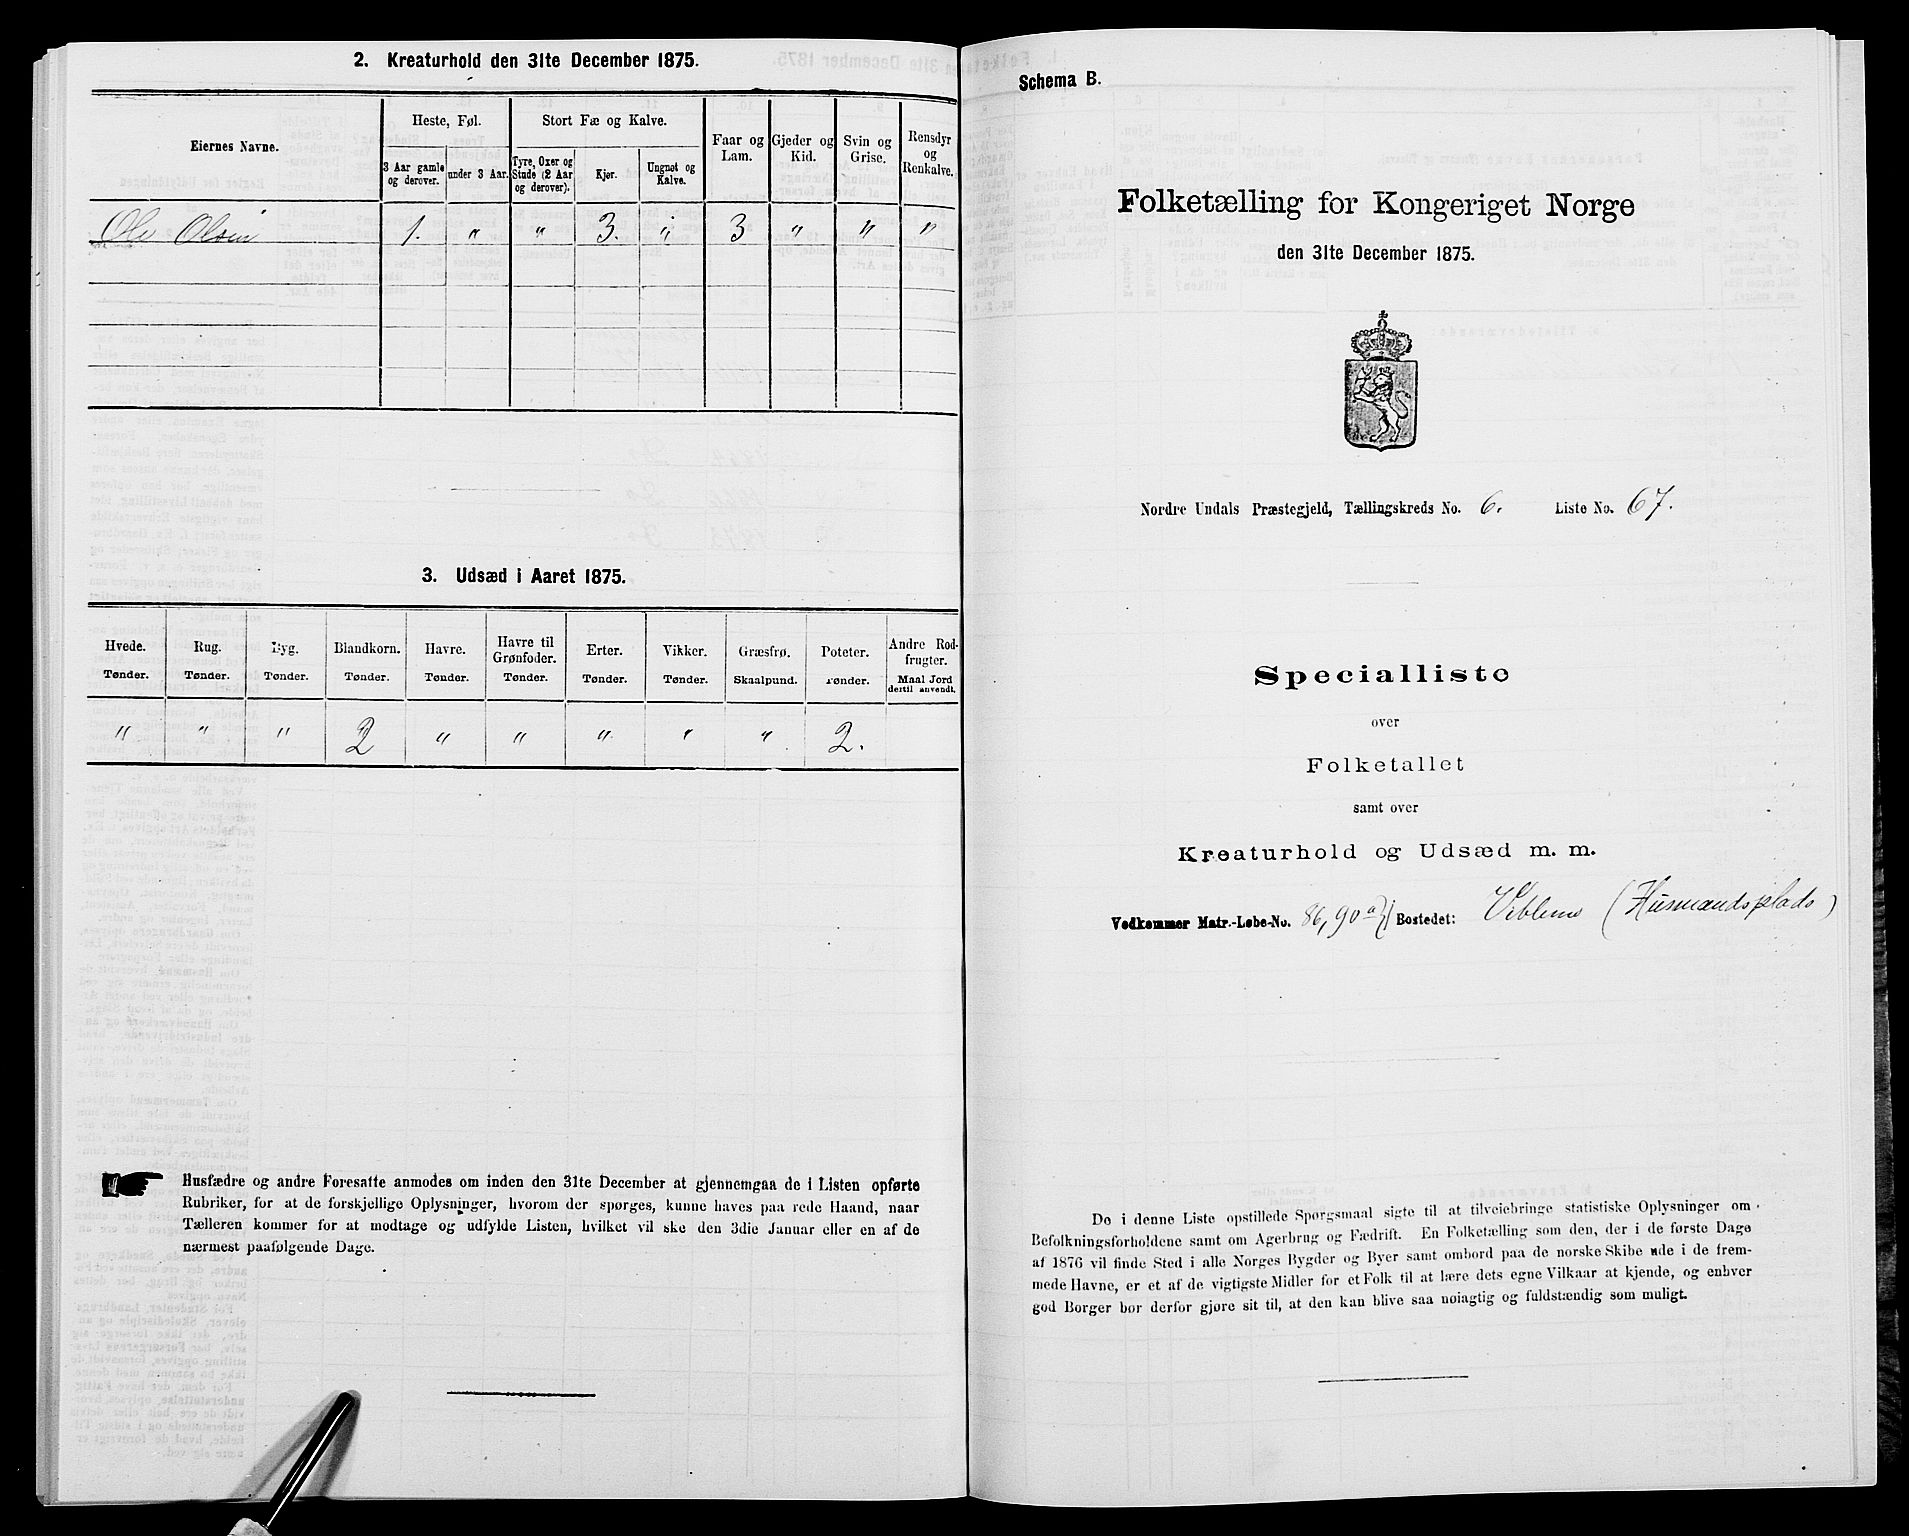 2. Kreaturhold den 31te December 1875.
Eiernes Navne.
Heste, Føl.
3 Aar gamle og derover.
under 3 Aar.
Stort Fæ og Kalve.
Tyre, Oxer og Stude (2 Aar og derover).
Kjør.
Ungnøt og Kalve.
Faar og Lam.
Gjeder og Kid.
Svin og Grise.
Rensdyr og Renkalve.
Ole Olsen 1. " " 3. " 3 " " "
3. Udsæd i Aaret 1875.
Hvede. Tønder.
Rug. Tønder.
Byg. Tønder.
Blandkorn. Tønder.
Havre. Tønder.
Havre til Grønfoder. Tønder.
Erter. Tønder.
Vikker. Tønder.
Græsfrø. Skaalpund.
Poteter. Tønder.
Andre Rodfrugter. Maal Jord dertil anvendt.
" " " 2 " " " " " 2.
Husfædre og andre Foresatte anmodes om inden den 31te December at gjennemgaa de i Listen opførte
Rubriker, for at de forskjellige Oplysninger, hvorom der spørges, kunne haves paa rede Haand, naar
Tælleren kommer for at modtage og udfylde Listen, hvilket vil ske den 3die Januar eller en af de
nærmest paafølgende Dage.
Schema B.
Folketælling for Kongeriget Norge
den 31te December 1875.
Nordre Undals Præstegjeld, Tællingskreds No. 6. Liste No. 67.
Specialliste
over
Folketallet
samt over
Kreaturhold og Udsæd m. m.
Vedkommer Matr.-Løbe-No. 86, 90 a Bostedet: (Husmandsplads)
De i denne Liste opstillede Spørgsmaal sigte til at tilveiebringe statistiske Oplysninger om
Befolkningsforholdene samt om Agerbrug og Fædrift. En Folketælling som den, der i de første Dage
af 1876 vil finde Sted i alle Norges Bygder og Byer samt ombord paa de norske Skibe ude i de frem-
mede Havne, er et af de vigtigste Midler for et Folk til at lære dets egne Vilkaar at kjende, og enhver
god Borger bør derfor gjøre sit til, at den kan blive saa nøiagtig og fuldstændig som muligt.